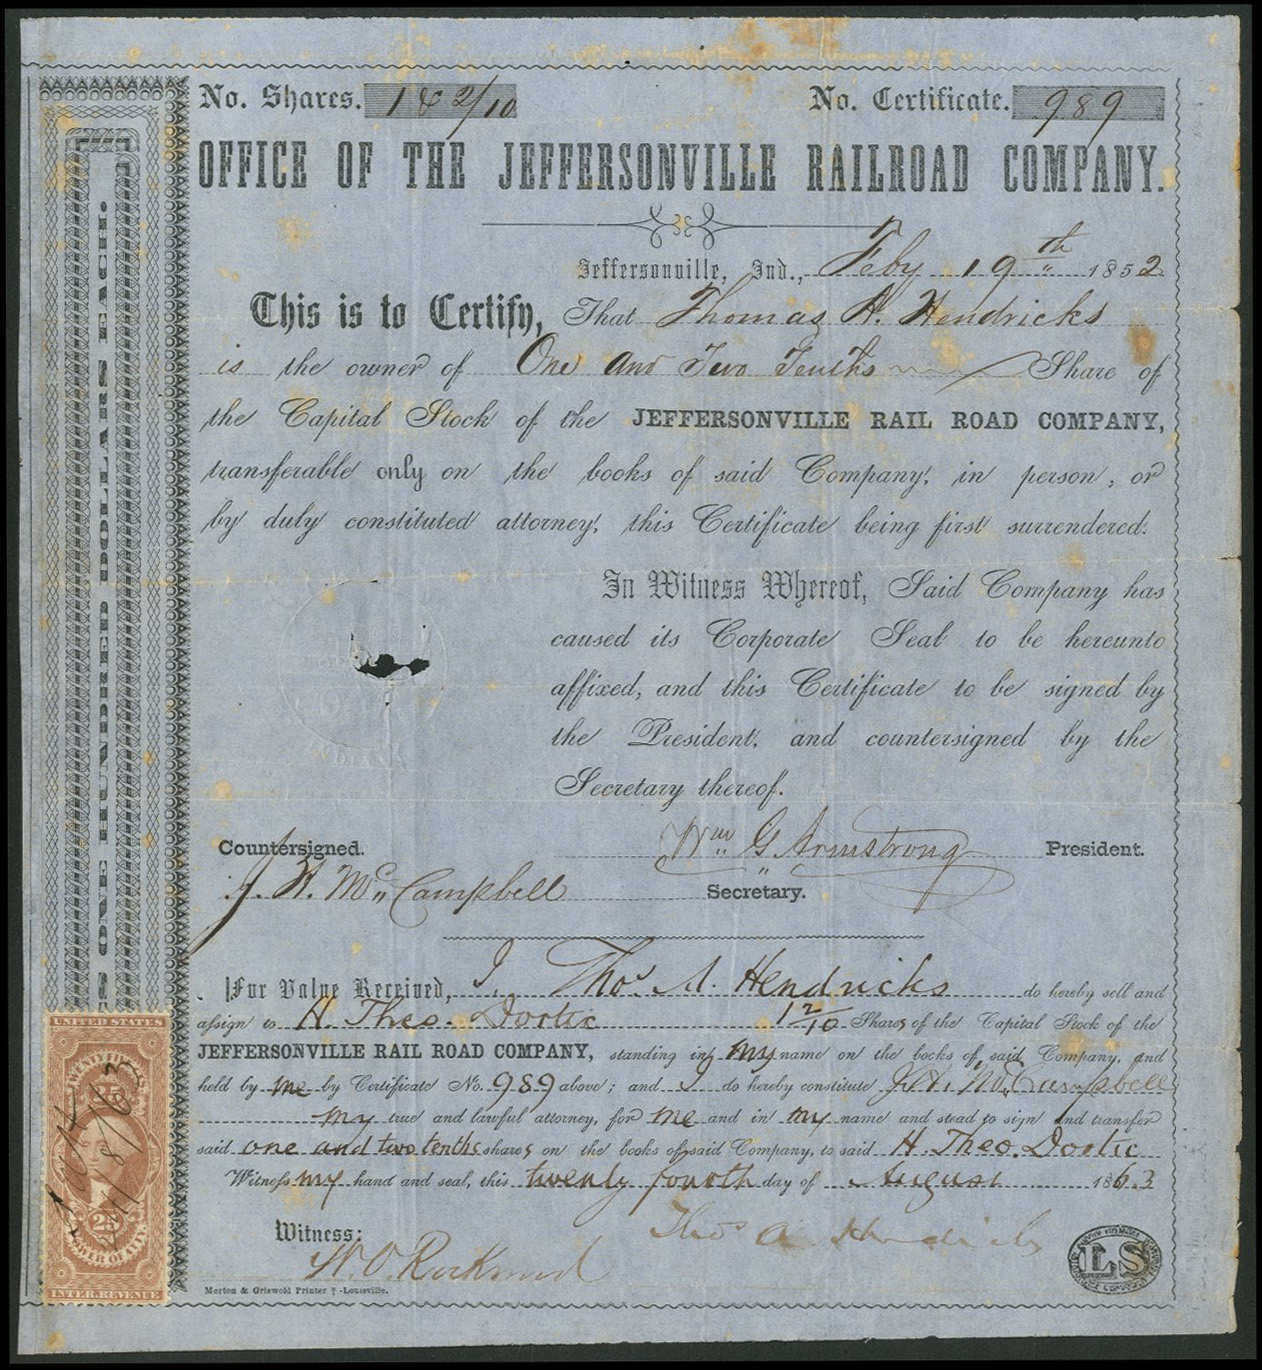 No. Shares. 1 & 2/10 No. Certificate. 989
OFFICE OF THE JEFFERSONVILLE RAILROAD COMPANY.
Jeffersonville, Ind., Feby 19th 1852
This is to Certify, That Thomas A. Hendricks
is the owner of One and Two Tenths Share of
the Capital Stock of the JEFFERSONVILLE RAIL ROAD COMPANY,
transferable only on the books of said Company, in person, or
by duly constituted attorney, this Certificate being first surrendered.
In Witness Whereof, Said Company has
caused its Corporate Seal to be hereunto
affixed, and this Certificate to be signed by
the President, and countersigned by the
Secretary thereof.
Countersigned. Wm G Armstrong President.
J. H. McCampbell Secretary.
For Value Received, I, Thos. A. Hendricks do hereby sell and
assign to H. Theo. Dortic 1 2/10 Shares of the Capital Stock of the
JEFFERSONVILLE RAIL ROAD COMPANY, standing in my name on the books of said Company, and
held by me by Certificate No. 989 above; and I do hereby constitute J. H. McCampbell
my true and lawful attorney, for me and in my name and stead to sign and transfer
said one and two tenths shares on the books of said Company, to said H. Theo. Dortic
Witness my hand and seal, this twenty fourth day of August 1863
Witness: Thos A Hendricks
Morton & Griswold Printer's -Louisville.
LS
UNITED STATES
25
25
POWER OF ATTY
INTER. REVENUE